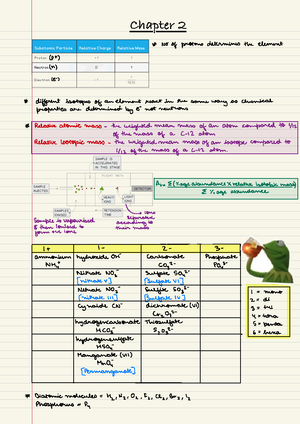 Chapter 2
Subatomic Particle Relative Charge Relative Mass
Proton (p+) +1 1
Neutron (n) 0 1
Electron (e-) -1
* No of protons determines the element
* different isotopes of an element react in the same way as chemical
properties are determined by e- not neutrons
* Relative atomic mass - the weighted mean mass of an atom compared to 1/12
of the mass of a C-12 atom
Relative isotopic mass - the weighted mean mass of an isotope compared to
1/12 of the mass of a C-12 atom.
SAMPLE IS
ACCELERATED
IN THIS STAGE
SAMPLE
INJECTED
DETECTOR
HEAVY
IONS
LIGHT
IONS
SAMPLE
IONISED
Sample is vapourised
& then ionised to
form +ve ions
ions
separate
according to
their mass
Ar = Σ(% age abundance x relative isotopic mass)
Σ % age abundance
1+ 1- 2- 3-
ammonium NH4+
hydroxide OH-
Carbonate CO3 2-
Phosphate PO4 3-
Nitrate NO3-
[nitrate V]
Sulfate SO4 2-
[Sulfate VI]
Nitrate NO2-
[nitrate III]
Sulfite SO3 2-
[Sulfate IV]
Cyanide CN-
dichromate (VI)
Cr2O7 2-
hydrogencarbonate
HCO3-
Thiosulfate
S2O3 2-
hydrogensulfate
HSO4-
Manganate (VII)
MnO4-
[Permanganate]
1 = mono
2 = di
3 = tri
4 = tetra
5 = penta
6 = hexa
* Diatomic molecules = H2, N2, O2, F2, Cl2, Br2, I2
Phosphorus = P4